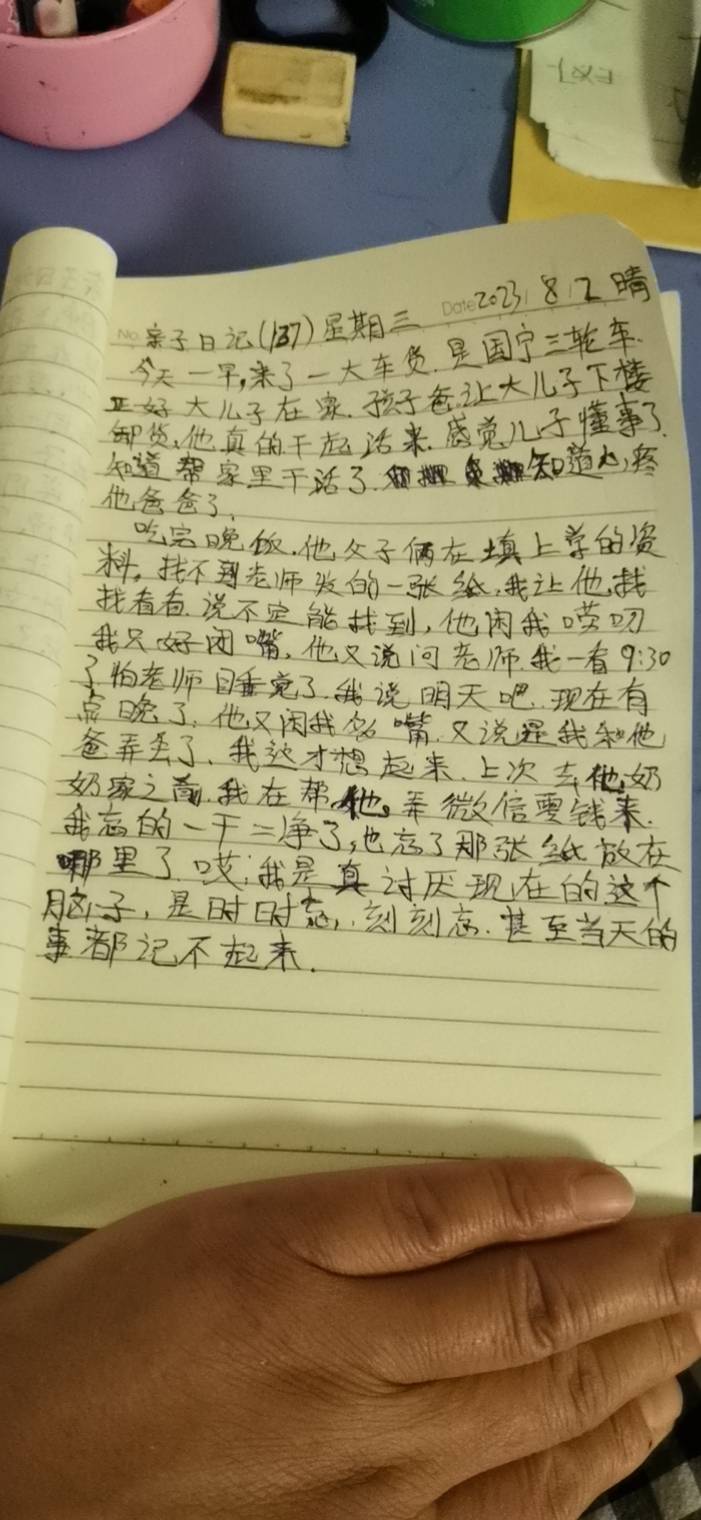 Date 2023 8 2 晴
No. 亲子日记(137)星期三
今天一早,来了一大车货.是国宁三轮车.
正好大儿子在家.孩子爸让大儿子下楼
卸货,他真的干起活来.感觉儿子懂事了.
知道帮家里干活了.知道心疼
他爸爸了.
吃完晚饭.他父子俩在填上学的资
料,找不到老师发的一张纸,我让他找
找看看.说不定能找到,他闲我唠叨
我只好闭嘴,他又说问老师.我一看9:30
了怕老师睡觉了.我说明天吧.现在有
点晚了,他又闲我多嘴.又说是我和他
爸弄丢了,我这才想起来.上次去他奶
奶家之前.我在帮他弄微信零钱来.
我忘的一干二净了,也忘了那张纸放在
哪里了.哎,我是真讨厌现在的这个
脑子,是时时忘,刻刻忘.甚至当天的
事都记不起来.